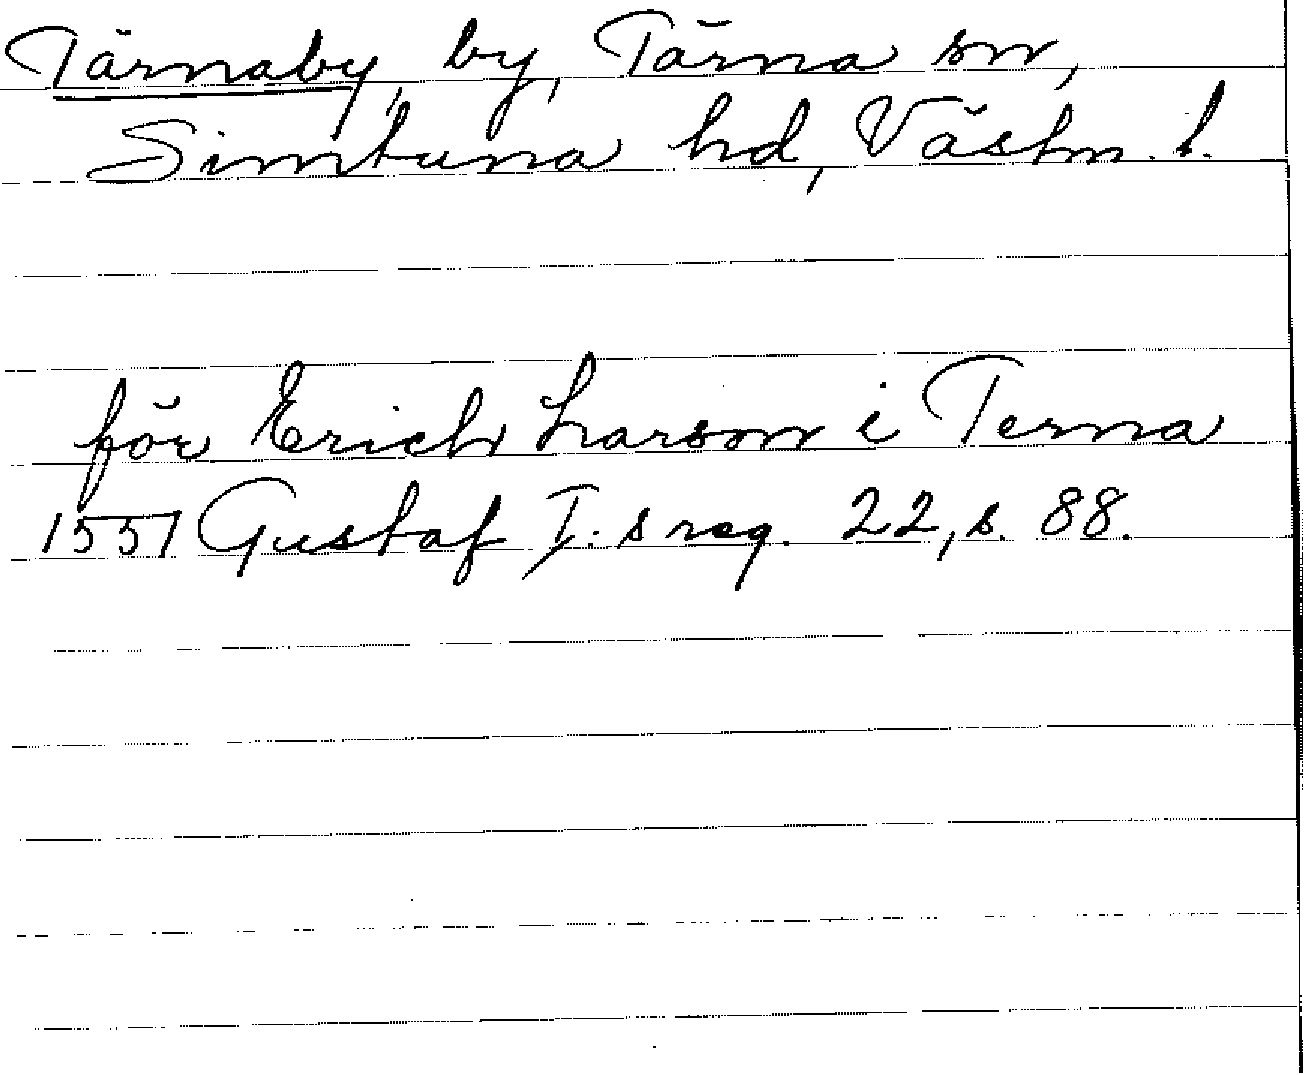 Tärnaby, by, Tärna sn,
Simtuna hd, Västm. l.
för Erich Larson i Terna
1551 Gustaf I:s reg. 22, s. 88.